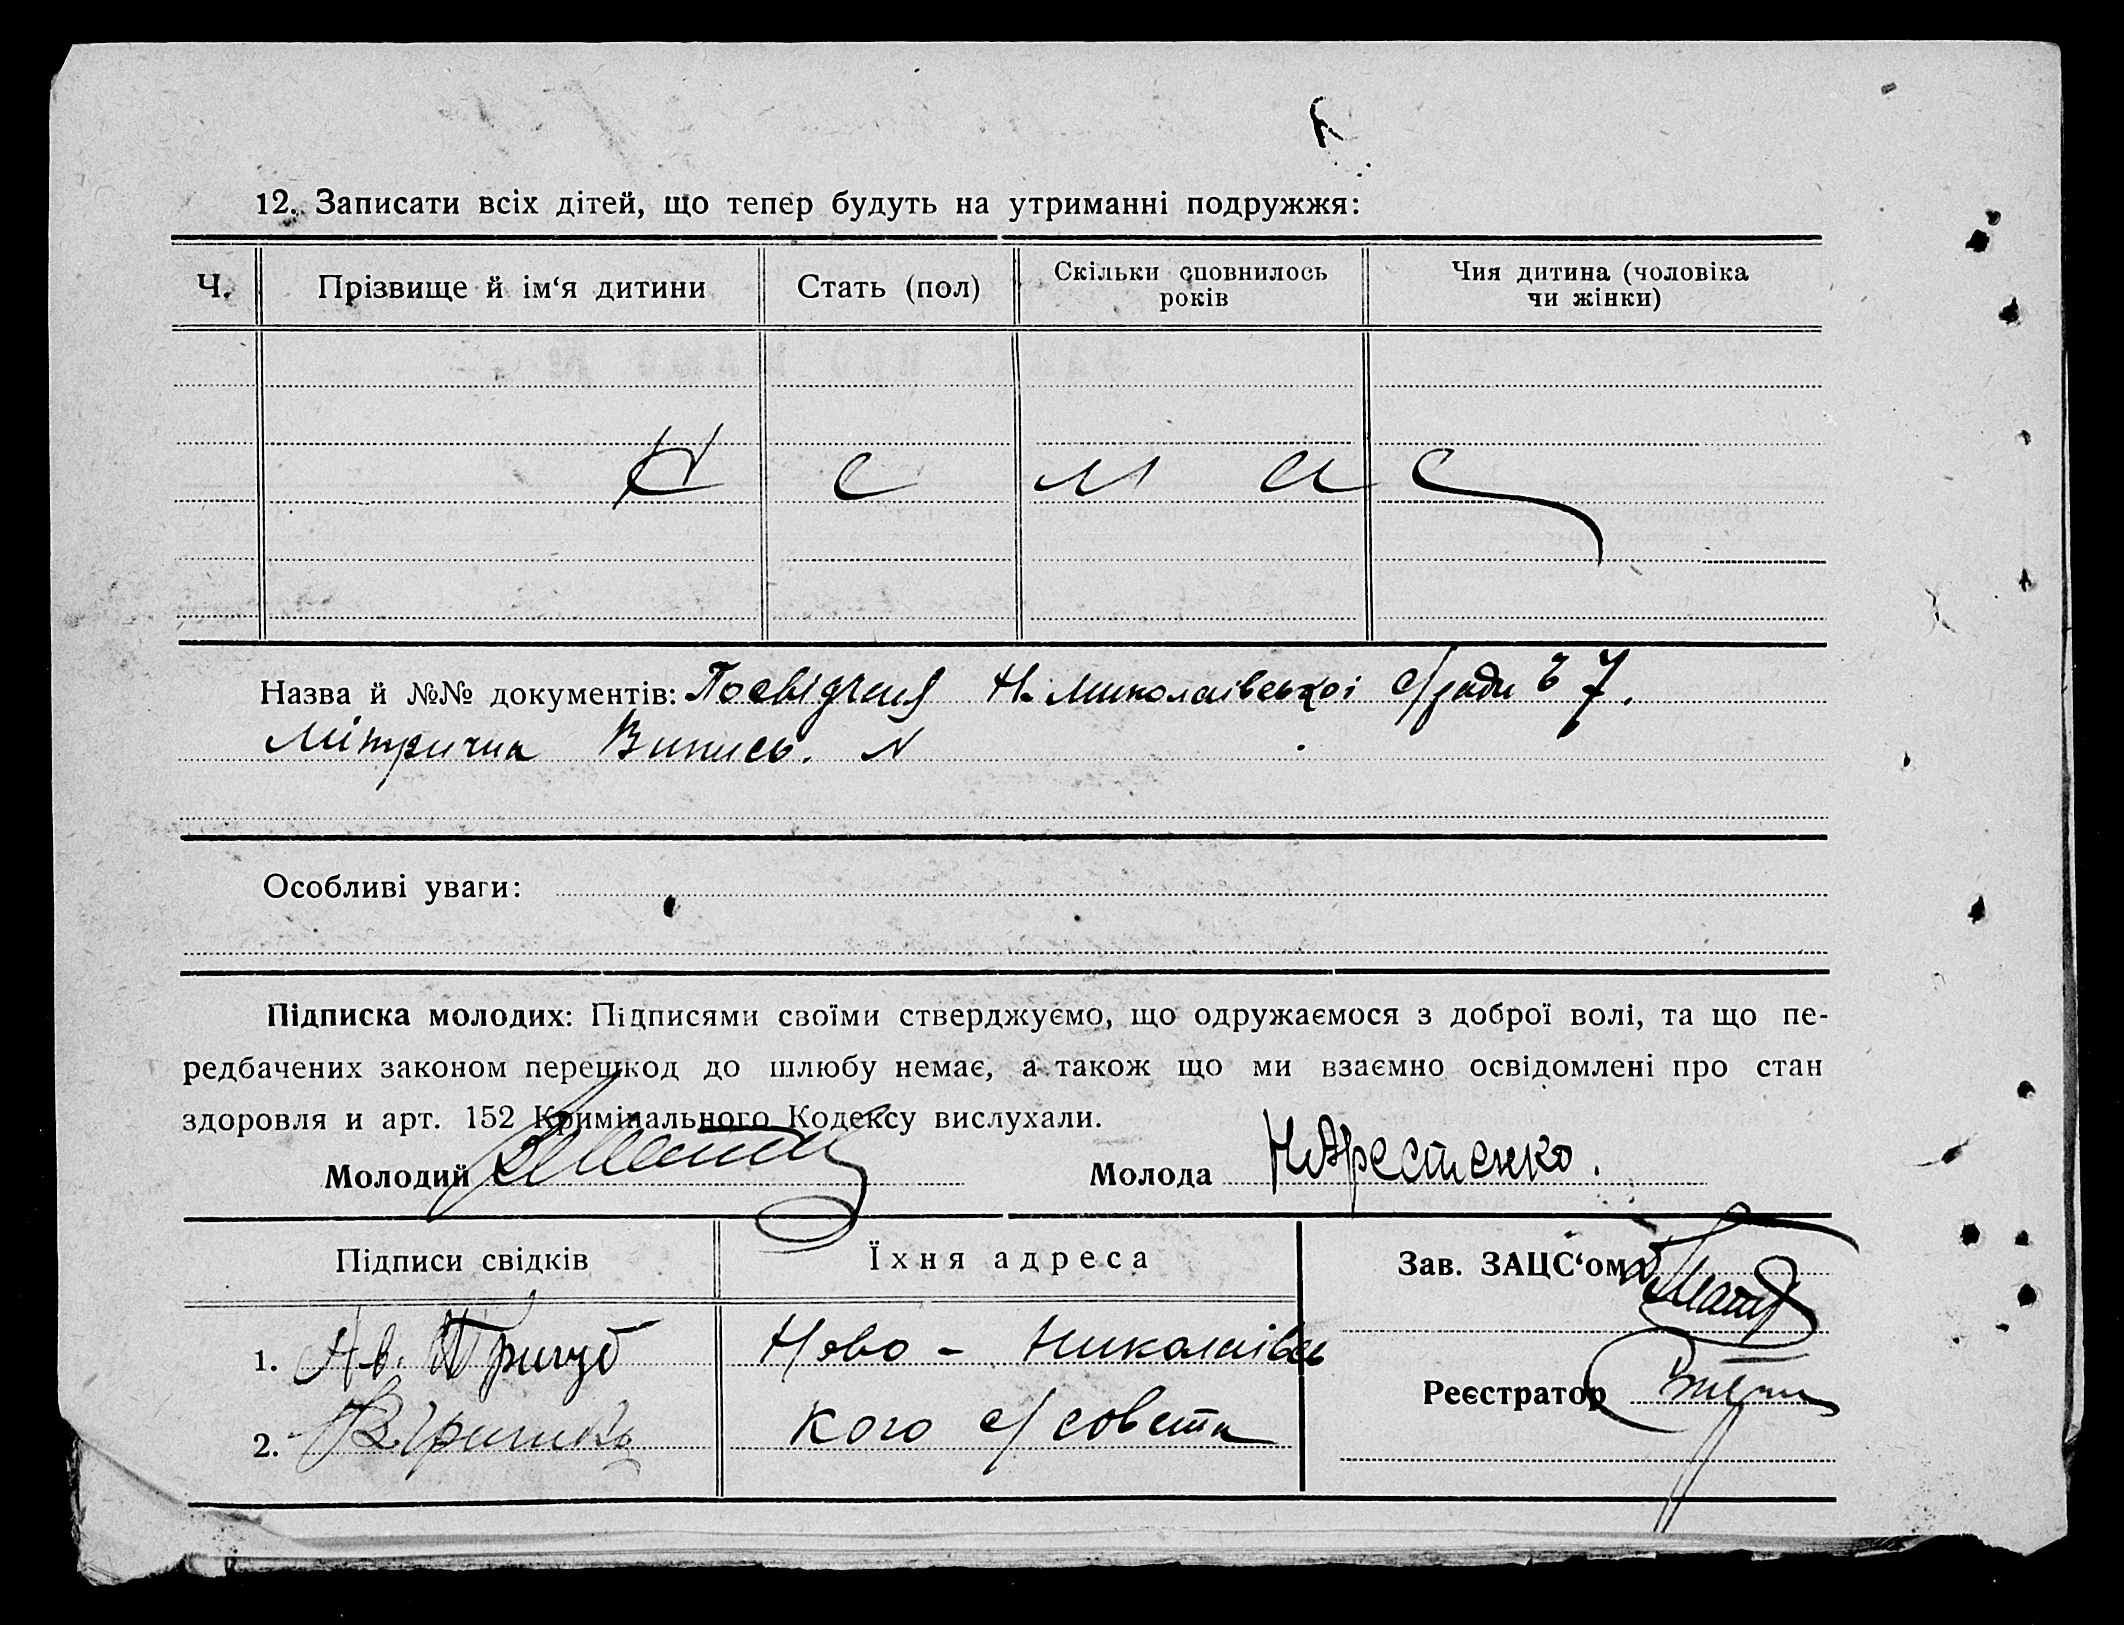 12. Записати всіх дітей, що тепер будуть на утриманні подружжя:
Ч. Прізвище й ім‘я дитини Стать (пол) Скільки сповнилось років Чия дитина (чоловіка чи жінки)
Немає
Назва й №№ документів: Посвідчен Н. Миколаівської с/ради
Мітрична Випись. N
Особливі уваги:
Підписка молодих: Підписями своїми стверджуємо, що одружаємося з доброї волі, та що пе-
редбачених законом перешкод до шлюбу немає, а також що ми взаємно освідомлені про стан
здоровля и арт. 152 Кримінального Кодексу вислухали.
Молодий Молода НАрестенко.
Підписи свідків Їхня адреса Зав. ЗАЦС‘ом
1. Ново - Николаівсь
Реєстратор
2. кого с/совета